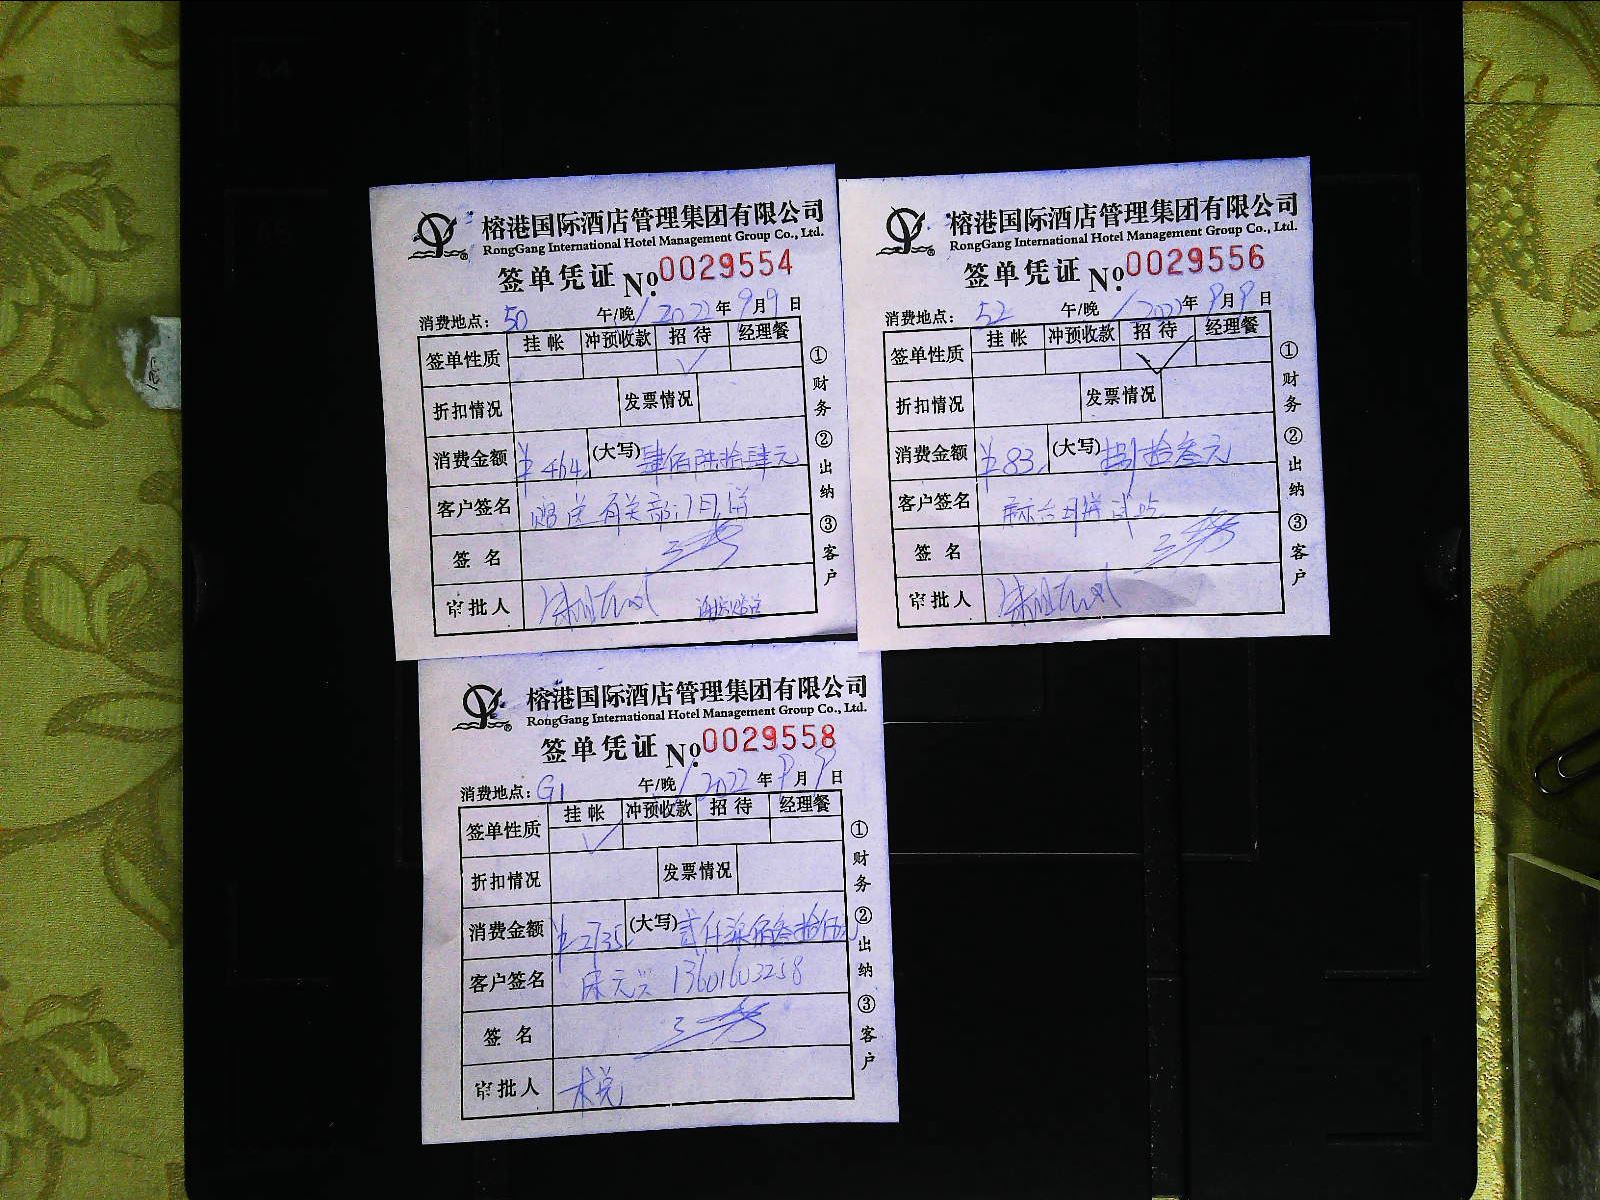 榕港国际酒店管理集团有限公司
RongGang International Hotel Management Group Co., Ltd.
签单凭证 No. 0029554
消费地点: 50 午/晚 / 2022年9月9日
签单性质 挂帐 冲预收款 招待 经理餐
✓
折扣情况 发票情况
消费金额 ¥464. (大写) 肆佰陆拾肆元
客户签名 赠送有关部门月饼
签名
审批人
①财务 ②出纳 ③客户
榕港国际酒店管理集团有限公司
RongGang International Hotel Management Group Co., Ltd.
签单凭证 No. 0029556
消费地点: 52 午/晚 / 2022年9月9日
签单性质 挂帐 冲预收款 招待 经理餐
✓
折扣情况 发票情况
消费金额 ¥83. (大写) 捌拾叁元
客户签名 月饼试吃
签名
审批人
①财务 ②出纳 ③客户
榕港国际酒店管理集团有限公司
RongGang International Hotel Management Group Co., Ltd.
签单凭证 No. 0029558
消费地点: G1 午/晚 / 2022年9月9日
签单性质 挂帐 冲预收款 招待 经理餐
✓
折扣情况 发票情况
消费金额 ¥2735. (大写) 贰仟柒佰叁拾伍元
客户签名 13601603258
签名
审批人
①财务 ②出纳 ③客户